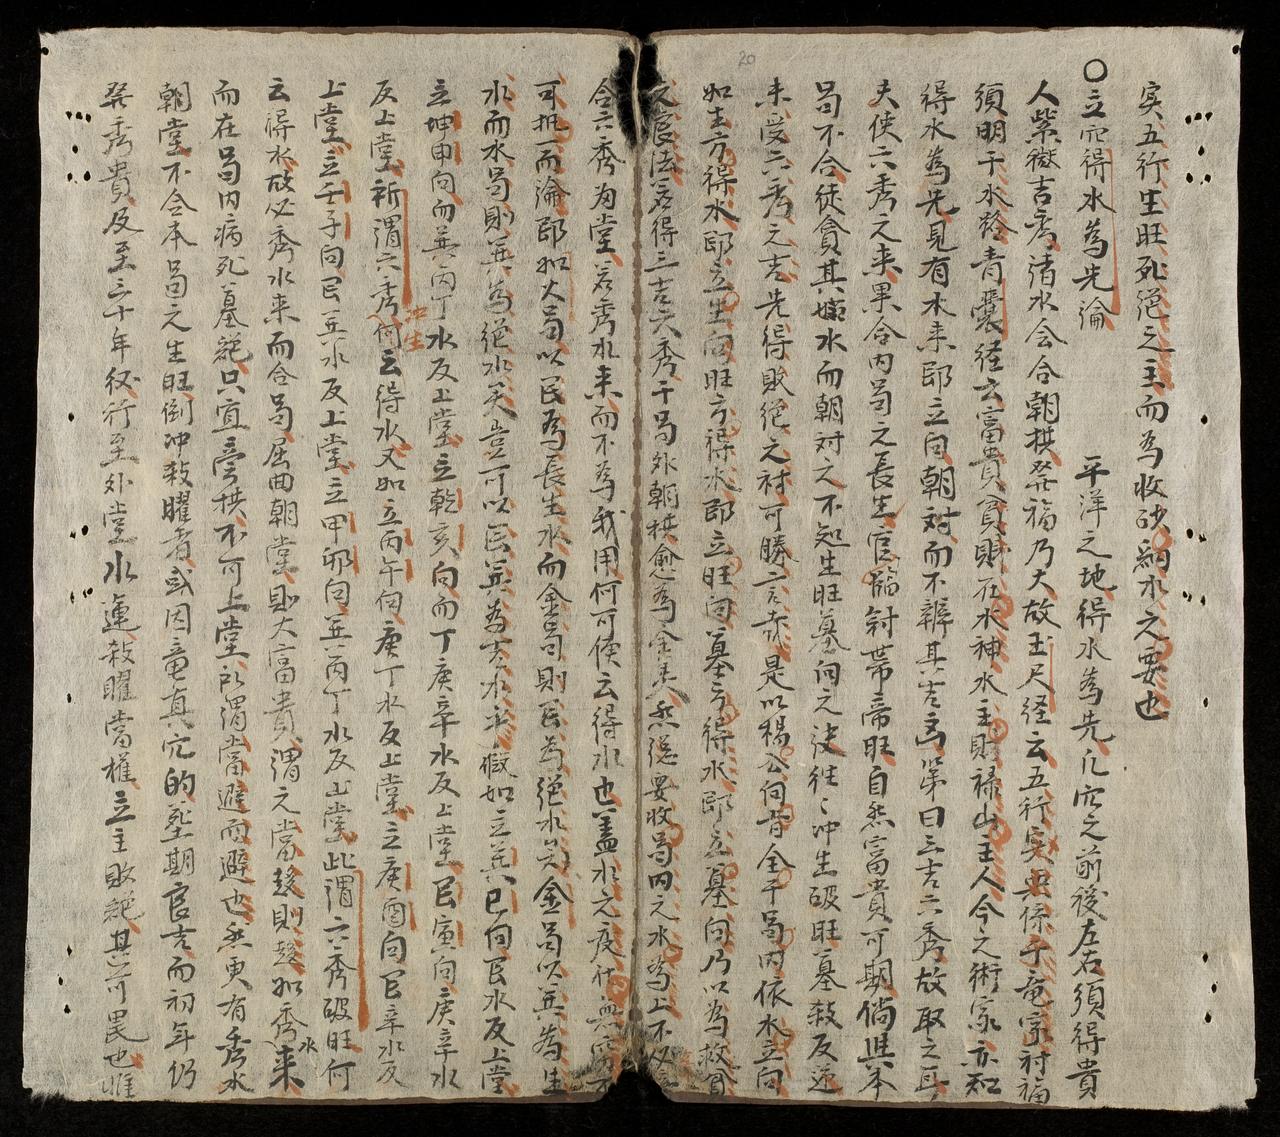 実五行生旺死絕之主而為收砂納水之要也
〇立穴得水為先論 平洋之地得水為先凢穴之前後左右須得貴
人紫微吉秀諸水会合朝拱発福乃大故玉尺経云五行実典係于竜家討福
須明于水経青囊経云富貴貧賤在水神水主財祿山主人今之術家亦知
得水為先見有水來即立向朝對而不辨其吉凶第曰三吉六秀故取之耳
夫使六秀之來果合内局之長生官臨討帯帝旺自然富貴可期倘與本
局不合徒貪其水而朝対之不知生旺墓向之訣徃〻冲生破旺墓殺反逆
未受六秀之吉先得敗絕之討可勝言哉是以楊公向肯全干局内依水立向
如生方得水即立生向旺方得水即立旺向墓方得水即立墓向乃以為救貧
之法若得三吉六秀于局外朝拱愈為全美然総要收局内之水為上不必
合六秀為堂若秀水來而不為我用何可便云得水也盖水之度代無
可執一而論即如火局以艮為長生水而金局則艮為絕水矣金局以巽為生
水而水局則巽為絕水矣豈可以艮巽為吉水乎假如立巽巳向艮水反上堂
立坤申向而巽丙丁水反上堂立乾亥向而丁庚辛水反上堂艮寅向庚辛水
反上堂所謂六秀冲生何云得水又如立丙午向庚丁水反上堂立庚酉向艮辛水反
上堂立壬子向艮巽水反上堂立甲卯向巽丙丁水反上堂此謂六秀破旺何
云得水故必秀水来而合局屈曲朝堂則大富貴謂之當發則發如秀水来
而在局内病死墓絕只宜旁拱不可上堂所謂當避而避也然更有秀水
朝堂不合本局之生旺倒冲殺曜者或因竜真穴的塟期良吉而初年仍
発秀貴及至三十年後行至外堂水運殺曜當權立主敗絕其可畏也惟